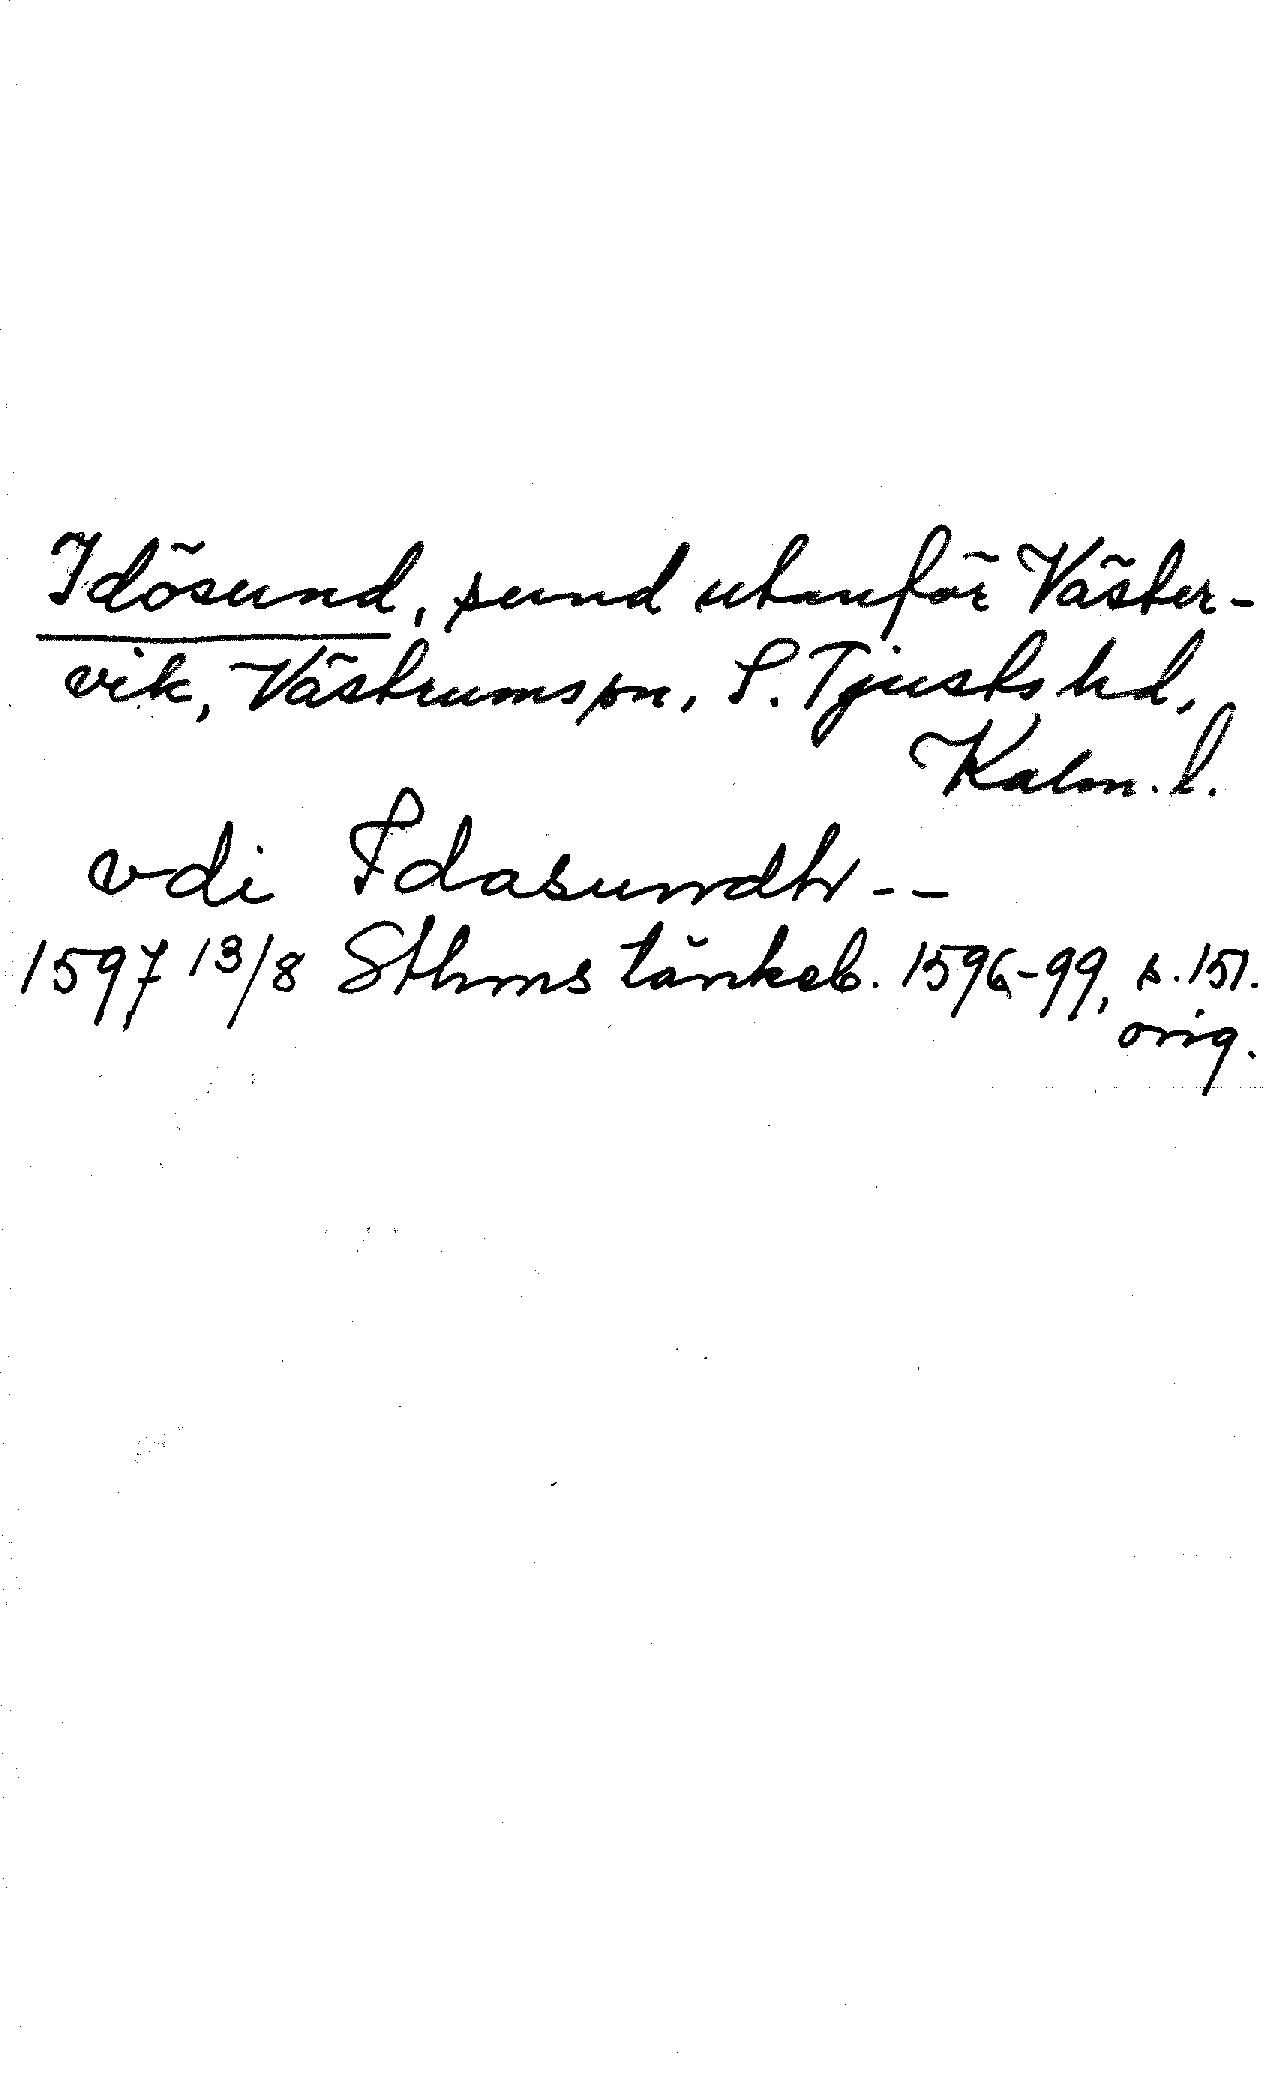 Idösund, sund utanför Väster-
vik, Västrumspn, S. Tjusts hd,
Kalm. l.
vdi Idasundh --
1597 13/8 Sthms tänkeb. 1596-99, s. 151.
orig.